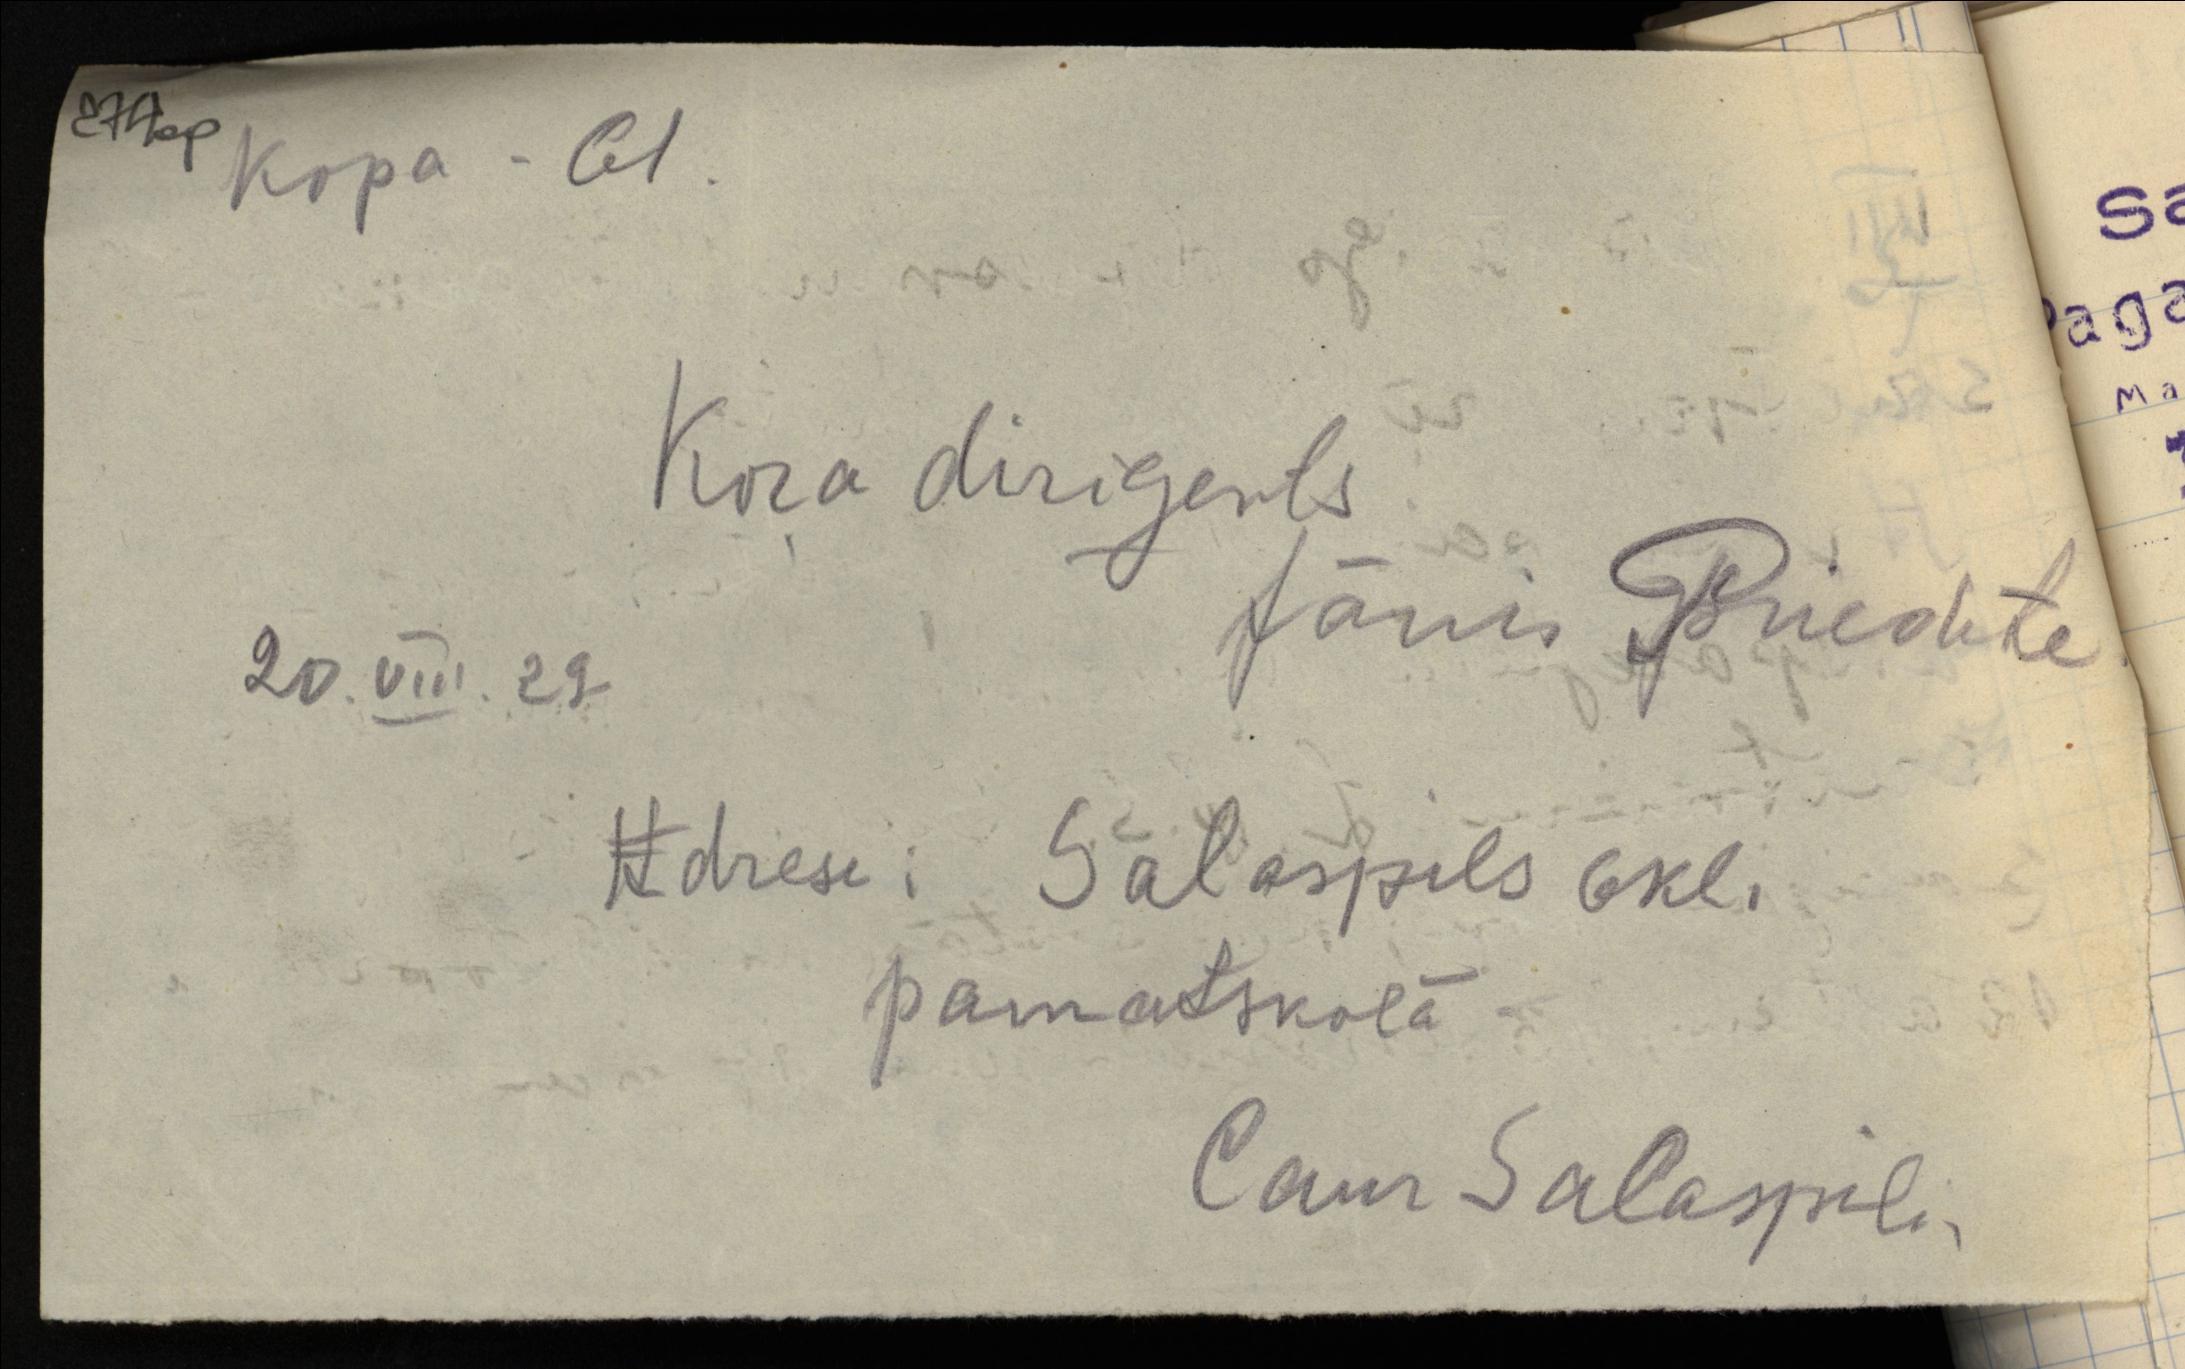 Kopa - 61.
Koŗa dirigents
Jānis Priedīte.
20. VIII. 29
Adrese: Salaspils 6kl.
pamatskolā
Caur Salaspili,
Sa
Paga
Ma